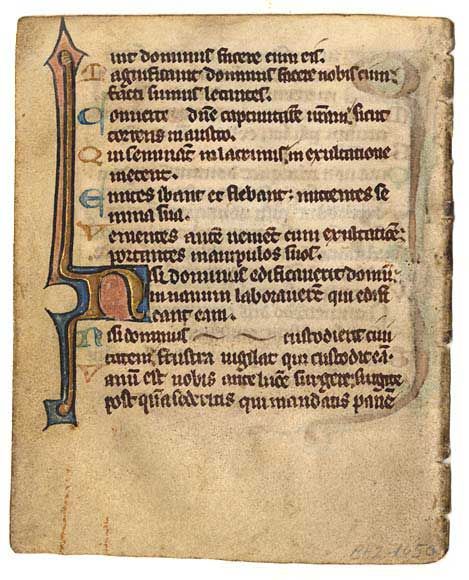 uit dominus facere cum eis.
Magnificauit dominus facere nobiscum:
facti sumus letantes.
Conuerte dñe captiuitatē nr̄am: sicut
torrens in austro.
Qui seminant in lacrimis, in exultatione
metent.
Euntes ibant et flebant: mittentes se
mina sua.
Venientes autē uenient cum exultatiōe:
portantes manipulos suos.
Nisi dominus edificauerit domū:
in uanum laborauerūt qui edifi
cant eam.
Nisi dominus custodierit ciui
tatem: frustra uigilat qui custodit eā.
Vanū est uobis ante lucē surgere: surgite
post quā sederitis qui manducatis panē